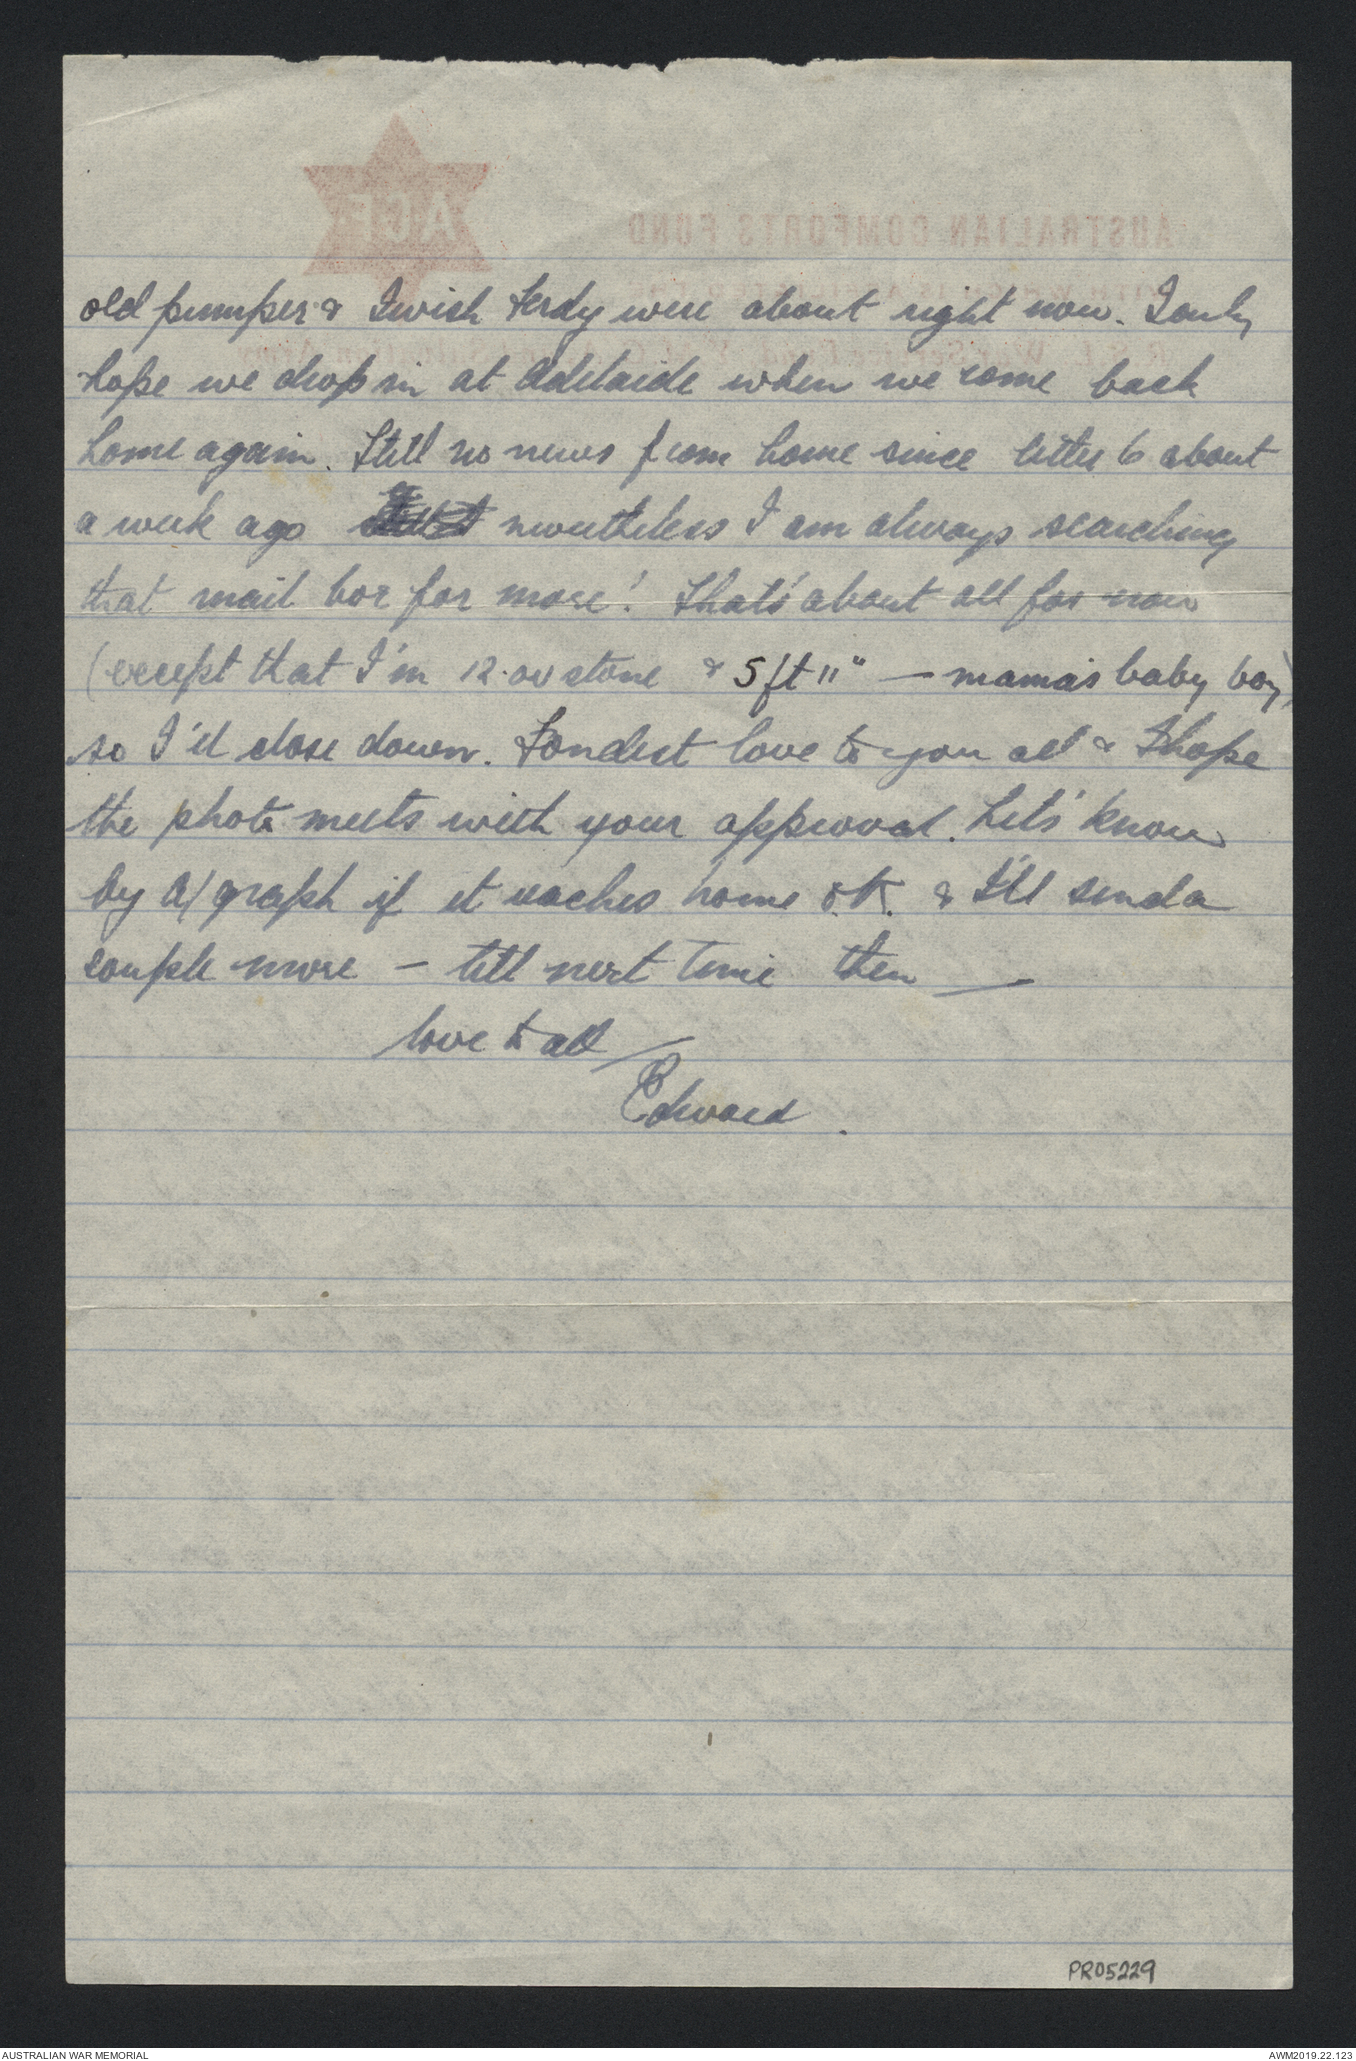 old pumper & I wish Ferdy were about right now. I only
hope we drop in at Adelaide when we come back
home again. Still no news from home since letter 6 about
a week ago nevertheless I am always searching
that mail box for more! That's about all for now
(except that I'm 12. stone & 5ft 11" — mama's baby boy)
so I'll close down. Fondest love to you all & I hope
the photo meets with your approval. Let's know
by A/graph if it reaches home O.K. & I'll send a
couple more – till next time then —
love to all
Edward.
PR05229
AUSTRALIAN WAR MEMORIAL
AWM2019.22.123